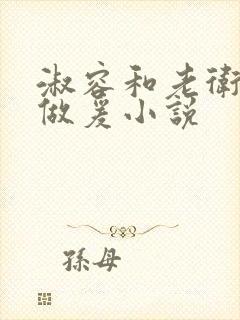 淑容和老衛
做爰小説
孫母